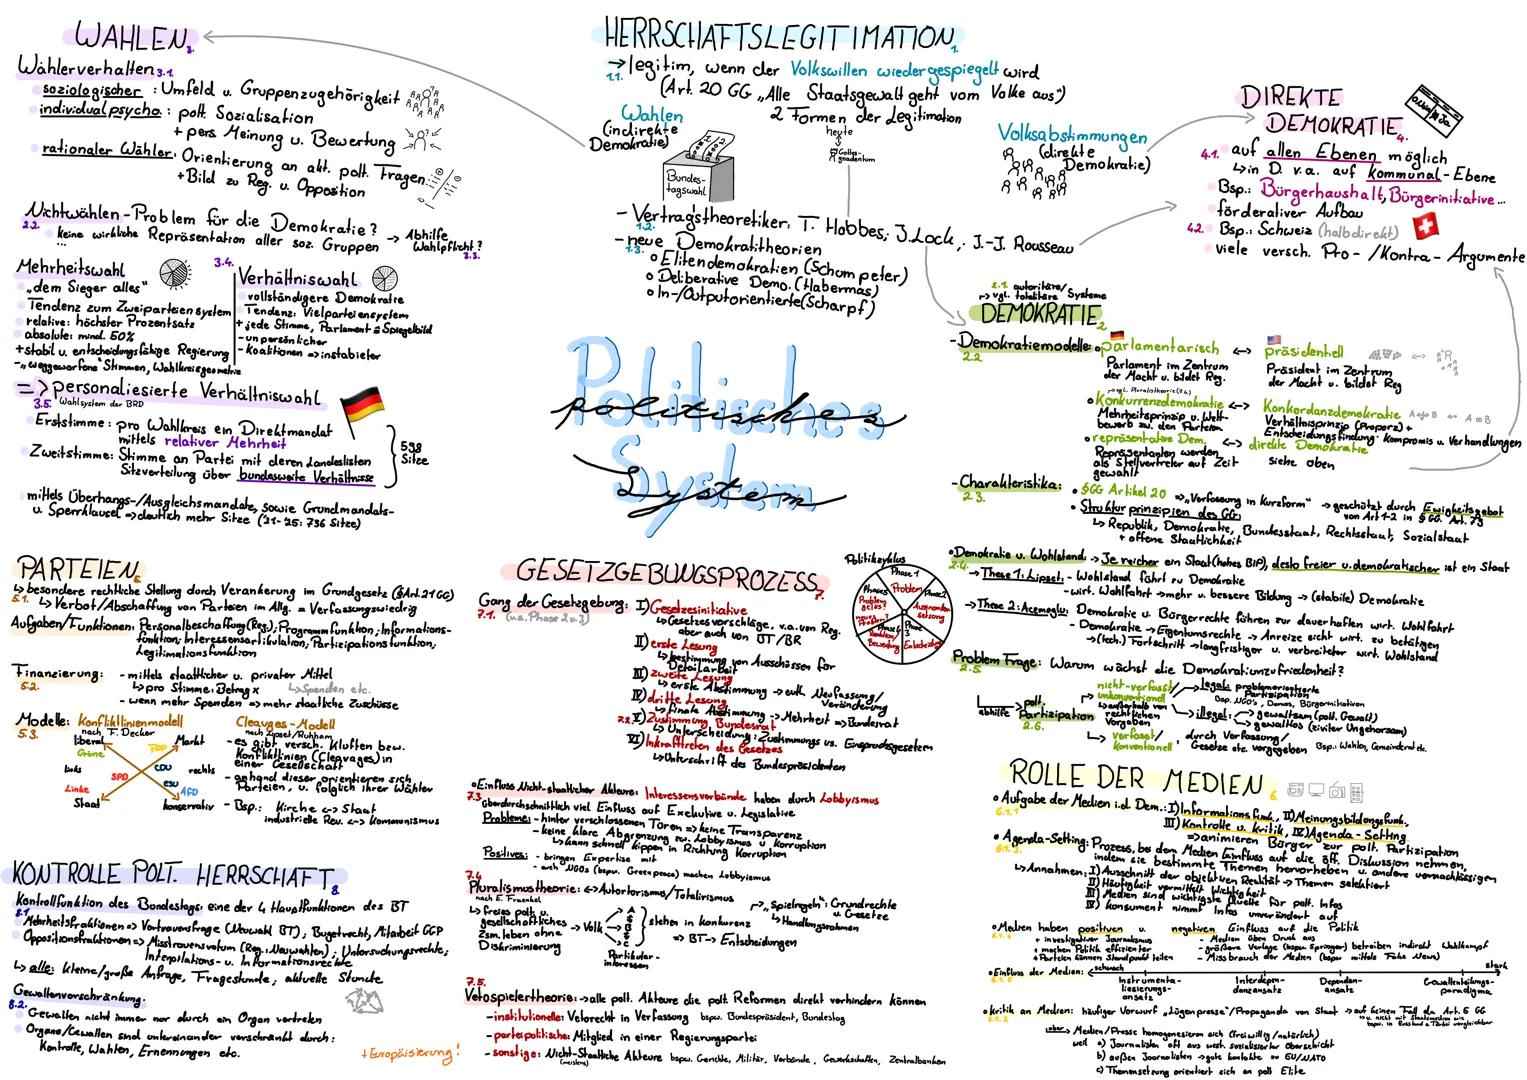 WAHLEN 3.
Wählerverhalten 3.1.
soziologischer : Umfeld u. Gruppenzugehörigkeit
individualpsycho.: polt. Sozialisation
+ pers. Meinung u. Bewertung
rationaler Wähler: Orientierung an akt. polt. Fragen
+Bild zu Reg. u. Opposition
Nichtwählen - Problem für die Demokratie?
2.2. keine wirkliche Repräsentation aller soz. Gruppen → Abhilfe Wahlpflicht?
...
3.3.
3.4.
Mehrheitswahl
„dem Sieger alles"
Tendenz zum Zweiparteiensystem
relative: höchster Prozentsatz
absolute: mind. 50%
+stabil u. entscheidungsfähige Regierung
-„weggeworfene" Stimmen, Wahlkreisgeometrie
Verhältniswahl
vollständigere Demokratie
Tendenz: Vielparteiensystem
+ jede Stimme, Parlament = Spiegelbild
- unpersönlicher
- Koalitionen => instabieler
=> personaliesierte Verhältniswahl
3.5. Wahlsystem der BRD
Erststimme: pro Wahlkreis ein Direktmandat
mittels relativer Mehrheit
Zweitstimme: Stimme an Partei mit deren Landeslisten
Sitzverteilung über bundesweite Verhältnisse
598 Sitze
mittels Überhangs-/Ausgleichsmandate, sowie Grundmandats-
u. Sperrklausel → deutlich mehr Sitze ('21-'25: 736 Sitze)
HERRSCHAFTSLEGITIMATION 1.
→ legitim, wenn der Volkswillen wiedergespiegelt wird
1.1. (Art. 20 GG „Alle Staatsgewalt geht vom Volke aus")
2 Formen der Legitimation
Wahlen
(indirekte
Demokratie)
Bundes-
tagswahl
heute
Gottes-
gnadentum
Volksabstimmungen
(direkte
Demokratie)
- Vertragstheoretiker: T. Hobbes, J. Lock, J.-J. Rousseau
1.2.
- neue Demokratitheorien
1.3.
Elitendemokratien (Schumpeter)
Deliberative Demo. (Habermas)
In-/Outputorientierte (Scharpf)
DIREKTE
DEMOKRATIE 4.
4.1. auf allen Ebenen möglich
↳ in D. v.a. auf kommunal-Ebene
Bsp.: Bürgerhaushalt, Bürgerinitiative...
förderativer Aufbau
4.2. Bsp.: Schweiz (halbdirekt)
viele versch. Pro-/Kontra-Argumente
Politisches
System
politisches
System
2.1. autoritäre/
vgl. totalitäre Systeme
DEMOKRATIE 2
- Demokratiemodelle:
2.2.
parlamentarisch ↔ präsidentiell
Parlament im Zentrum
der Macht u. bildet Reg.
Präsident im Zentrum
der Macht u. bildet Reg
vgl. Pluralistheorie (7.4.)
Konkurrenzdemokratie ↔ Konkordanzdemokratie
Mehrheitsprinzip u. Wett-
bewerb zw. den Parteien
Verhältnisprinzip (Proporz) +
Entscheidungsfindung: Kompromis u. Verhandlungen
repräsentative Dem. ↔ direkte Demokratie
Repräsentanten werden
als Stellvertreter auf Zeit
gewählt
siehe oben
- Charakteristika:
2.3.
§GG Artikel 20 => „Verfassung in Kurzform" → geschützt durch Ewigkeitsgebot
von Art 1-2 in §GG. Art. 79
Strukturprinzipien des GG:
↳ Republik, Demokratie, Bundesstaat, Rechtsstaat, Sozialstaat
+ offene Staatlichkeit
Demokratie u. Wohlstand: → Je reicher ein Staat (hohes BIP), desto freier u. demokratischer ist ein Staat
2.4.
→ These 1: Lipset: - Wohlstand führt zu Demokratie
- wirt. Wohlfahrt → mehr u. bessere Bildung → (stabile) Demokratie
→ These 2: Acemoglu: Demokratie u. Bürgerrechte führen zur dauerhaften wirt. Wohlfahrt
- Demokratie → Eigentumsrechte → Anreize sicht wirt. zu betätigen
→ (tech.) Fortschritt → langfristiger u. verbreiteter wirt. Wohlstand
Problem Frage: Warum wächst die Demokratiunzufriedenheit?
2.5.
abhilfe → polt. Partizipation
2.6.
nicht-verfasst/
unkonventionell
↳ außerhalb von
rechtlichen
Vorgeben
legal: problemorientierte
Partizipation
Bsp. NGO's, Demos, Bürgerinitiativen
illegal: → gewaltsam (polt. Gewalt)
→ gewaltlos (ziviler Ungehorsam)
verfasst/
konventionell: durch Verfassung/
Gesetze etc. vorgegeben Bsp.: Wahlen, Gemeinderat etc.
PARTEIEN 5.
↳ besondere rechtliche Stellung durch Verankerung im Grundgesetz (§Art. 21 GG)
5.1. ↳ Verbot/Abschaffung von Parteien im Allg. = Verfassungswiedrig
Aufgaben/Funktionen: Personalbeschaffung (Reg.); Programmfunktion; Informations-
funktion; Interessensartikulation; Partizipationsfunktion;
Legitimationsfunktion
Finanzierung:
5.2.
- mittels staatlicher u. privater Mittel
↳ pro Stimme: Betrag x ↳ Spenden etc.
- wenn mehr Spenden => mehr staatliche Zuschüsse
Modelle:
5.3.
Konfliktlinienmodell
nach F. Decker
liberal Markt
Grüne FDP
links SPD CDU rechts
CSU
Linke AfD
Staat konservativ
Cleavges-Modell
nach Lipset/Rokkam
- es gibt versch. Kluften bzw.
Konfliktlinien (Cleavages) in
einer Gesellschaft
- anhand dieser orientieren sich
Parteien, u. folglich ihrer Wähler
- Bsp.: Kirche <-> Staat
industrielle Rev. <-> Kommunismus
GESETZGEBUNGSPROZESS 7.
Gang der Gesetzgebung:
7.1. (u.a. Phase 2 u. 3)
I) Gesetzesinitiative
↳ Gesetzesvorschläge, v.a. von Reg.
aber auch von BT/BR
II) erste Lesung
↳ bestimmung von Ausschüssen für
Detailarbeit
III) zweite Lesung
↳ erste Abstimmung → evtl. Neufassung/
Veränderung
IV) dritte Lesung
↳ finale Abstimmung → Mehrheit => Bundesrat
7.2. V) Zustimmung Bundesrat
↳ Unterscheidung: Zustimmungs vs. Einspruchsgesetzen
VI) Inkrafttreten des Gesetzes
↳ Unterschrift des Bundespräsidenten
Politikzyklus
Phase 1
Problem
Phase 2
Auseinander-
setzung
Phase 3
Entscheidung
Reaktion
Bewertung
Phase 5
Problem
gelöst?
neues
Problem?
Einfluss Nicht-staatlicher Akteure: Interessensverbände haben durch Lobbyismus
7.3. überdurchschnittlich viel Einfluss auf Exekutive u. Legislative
Probleme: - hinter verschlossenen Türen => keine Transparenz
- keine klare Abgrenzung zw. Lobbyismus u. Korruption
↳ kann schnell kippen in Richtung Korruption
Positives: - bringen Expertise mit
- auch NGOs (bspw. Greenpeace) machen Lobbyismus
7.4
Pluralismustheorie: <-> Autortarismus/Totalirismus
nach E. Fraenkel
↳ freies polt. u.
gesellschaftliches
Zsm.leben ohne
Diskriminierung
→ Volk
A
B
C
stehen in konkurenz
=> BT → Entscheidungen
Partikular-
interessen
„Spielregeln": Grundrechte
u. Gesetze
↳ Handlungsrahmen
7.5.
Vetospielertheorie: → alle polt. Akteure die polt. Reformen direkt verhindern können
- institutionelle: Vetorecht in Verfassung bspw. Bundespräsident, Bundestag
- parteipolitische: Mitglied in einer Regierungspartei
- sonstige: Nicht-Staatliche Akteure bspw. Gerichte, Militär, Verbände, Gewerkschaften, Zentralbanken
(meistens)
KONTROLLE POLT. HERRSCHAFT 8.
Kontrollfunktion des Bundestags: eine der 4 Hauptfunktionen des BT
8.1
Mehrheitsfraktionen => Vertrauensfrage (Neuwahl BT), Bugetrecht, Mitarbeit GGP
Oppositionsfraktionen => Misstrauensvotum (Reg.: Neuwahlen), Untersuchungsrechte,
Interpilations- u. Informationsrechte
↳ alle: kleine/große Anfrage, Fragestunde, aktuelle Stunde
Gewaltenverschränkung:
8.2.
Gewalten nicht immer nur durch ein Organ vertreten
Organe/Gewalten sind untereinander verschränkt durch:
Kontrolle, Wahlen, Ernennungen etc.
+ Europäisierung!
ROLLE DER MEDIEN 6.
Aufgabe der Medien i.d. Dem.: I) Informationsfunk., II) Meinungsbildungsfunk.
6.1.1 III) Kontrolle u. Kritik, IV) Agenda-Setting
→ animieren Bürger zur polt. Partizipation
Agenda-Setting: Prozess, bei dem Medien Einfluss auf die öff. Diskussion nehmen,
6.1.3. indem sie bestimmte Themen hervorheben u. andere vernachlässigen
↳ Annahmen: I) Ausschnitt der objektiven Realität → Themen selektiert
II) Häufigkeit vermittelt Wichtigkeit
III) Medien sind wichtigste Quelle für polt. Infos
IV) konsument nimmt Infos unverändert auf
Medien haben positiven u. negativen Einfluss auf die Politik
+ investigativer Journalismus
+ machen Politik effizienter
+ Parteien können Standpunkt teilen
- Medien üben Druck aus
- größere Verlage (bspw. Springer) betreiben indirekt Wahlkampf
- Missbrauch der Medien (bspw. mittels Fake News)
Einfluss der Medien: schwach stark
Instrumenta-
lisierungs-
ansatz
Interdepen-
denzansatz
Dependen-
ansatz
Gewaltenteilungs-
paradigma
kritik an Medien: häufiger Vorwurf „Lügenpresse"/Propaganda von Staat → auf keinen Fall da Art. 5 GG
6.1.2
→ u. nicht mit Staatsmedien wie
bspw. in Russland o. Türkei vergleichbar
aber → Medien/Presse homogenisieren sich (freiwillig/natürlich)
weil a) Journalisten oft aus west. sozialisierter Oberschicht
b) außen Journalisten → gute kontakte zu EU/NATO
c) Themensetzung orientiert sich an polt Elite